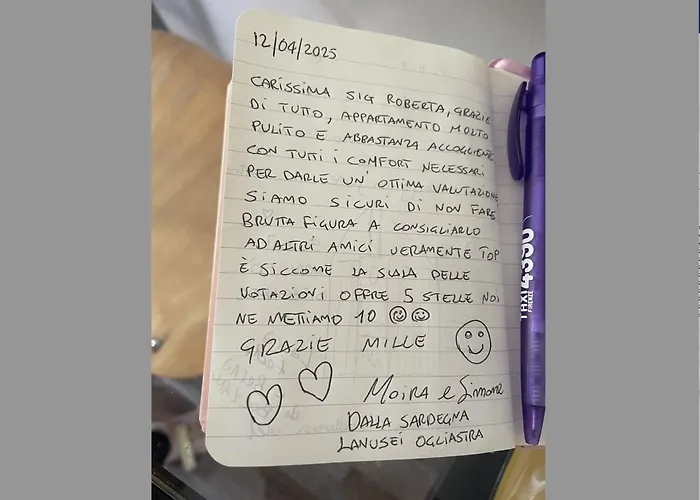 12/04/2025
CARISSIMA SIG ROBERTA, GRAZIE
DI TUTTO, APPARTAMENTO MOLTO
PULITO E ABBASTANZA ACCOGLIENTE
CON TUTTI I COMFORT NECESSARI
PER DARLE UN' OTTIMA VALUTAZIONE,
SIAMO SICURI DI NON FARE
BRUTTA FIGURA A CONSIGLIARLO
AD ALTRI AMICI VERAMENTE TOP
È SICCOME LA SCALA DELLE
VOTAZIONI OFFRE 5 STELLE NOI
NE METTIAMO 10
GRAZIE MILLE
Moira e Simone
DALLA SARDEGNA
LANUSEI OGLIASTRA
TAXI 4390
FIRENZE